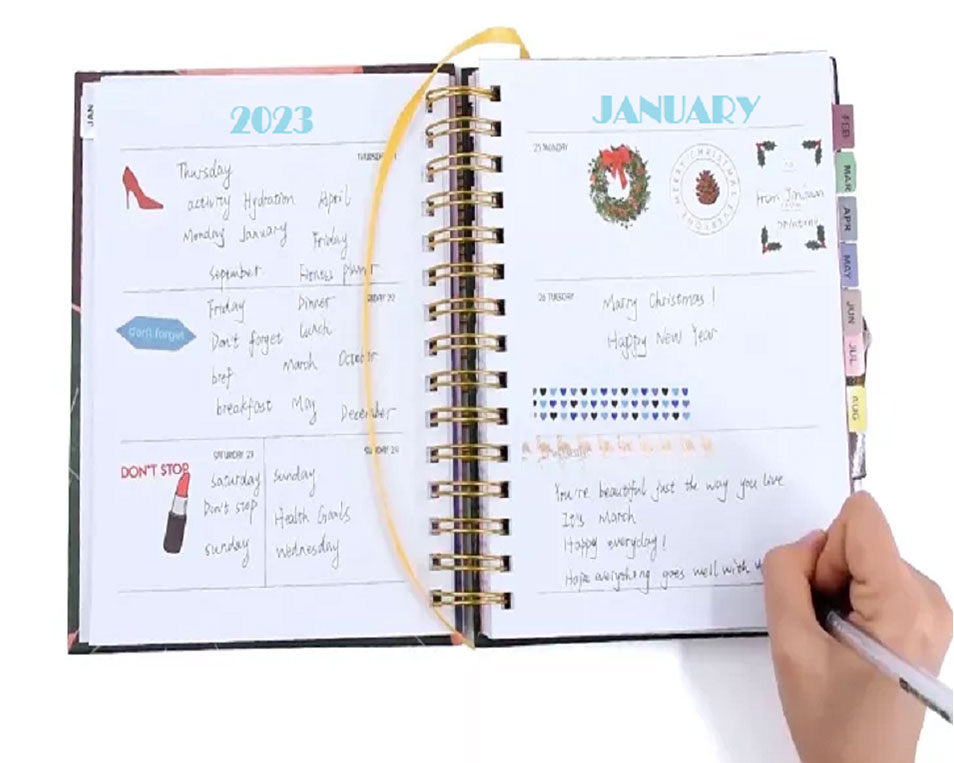 JAN
2023
THURSDAY
Thursday
activity Hydration April
Monday January Friday
september Fitness planner
22
Friday Dinner
don't forget
Don't forget lunch
March October
breakfast May December
SATURDAY 23
DON'T STOP
saturday
Don't stop
sunday
sunday
Health Goals
Wednesday
JANUARY
25 MONDAY
MERRY CHRISTMAS EVERYONE
from Jinjuan
printing
26 TUESDAY
Marry Christmas!
Happy New Year
You're beautiful just the way you love
It's March
Happy everyday!
Hope everything goes well with
FEB
MAR
APR
MAY
JUN
JUL
AUG